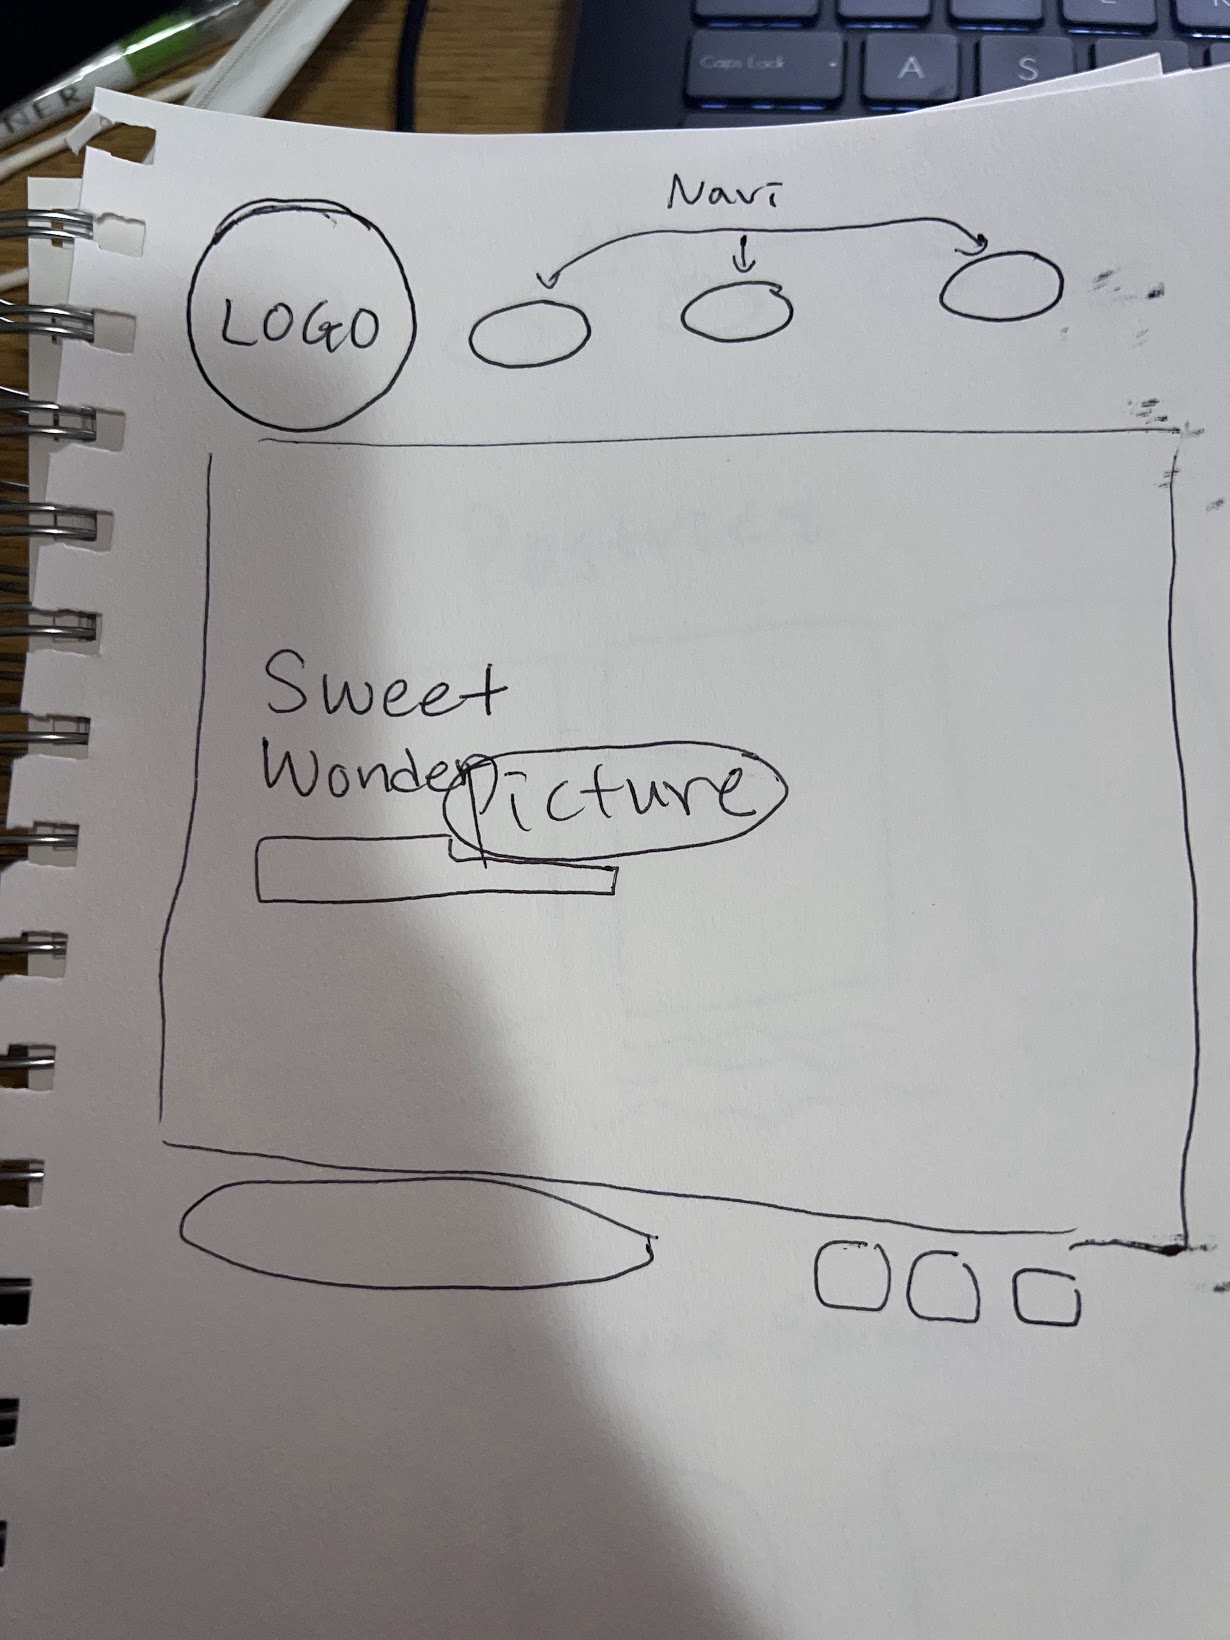 NER
Caps Lock
A
S
Navi
LOGO
Sweet
Wonder
Picture